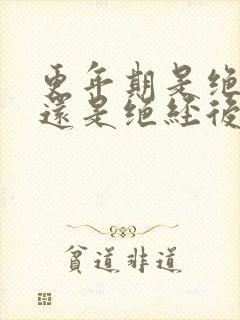 更年期是绝
還是绝経後
貧道非道